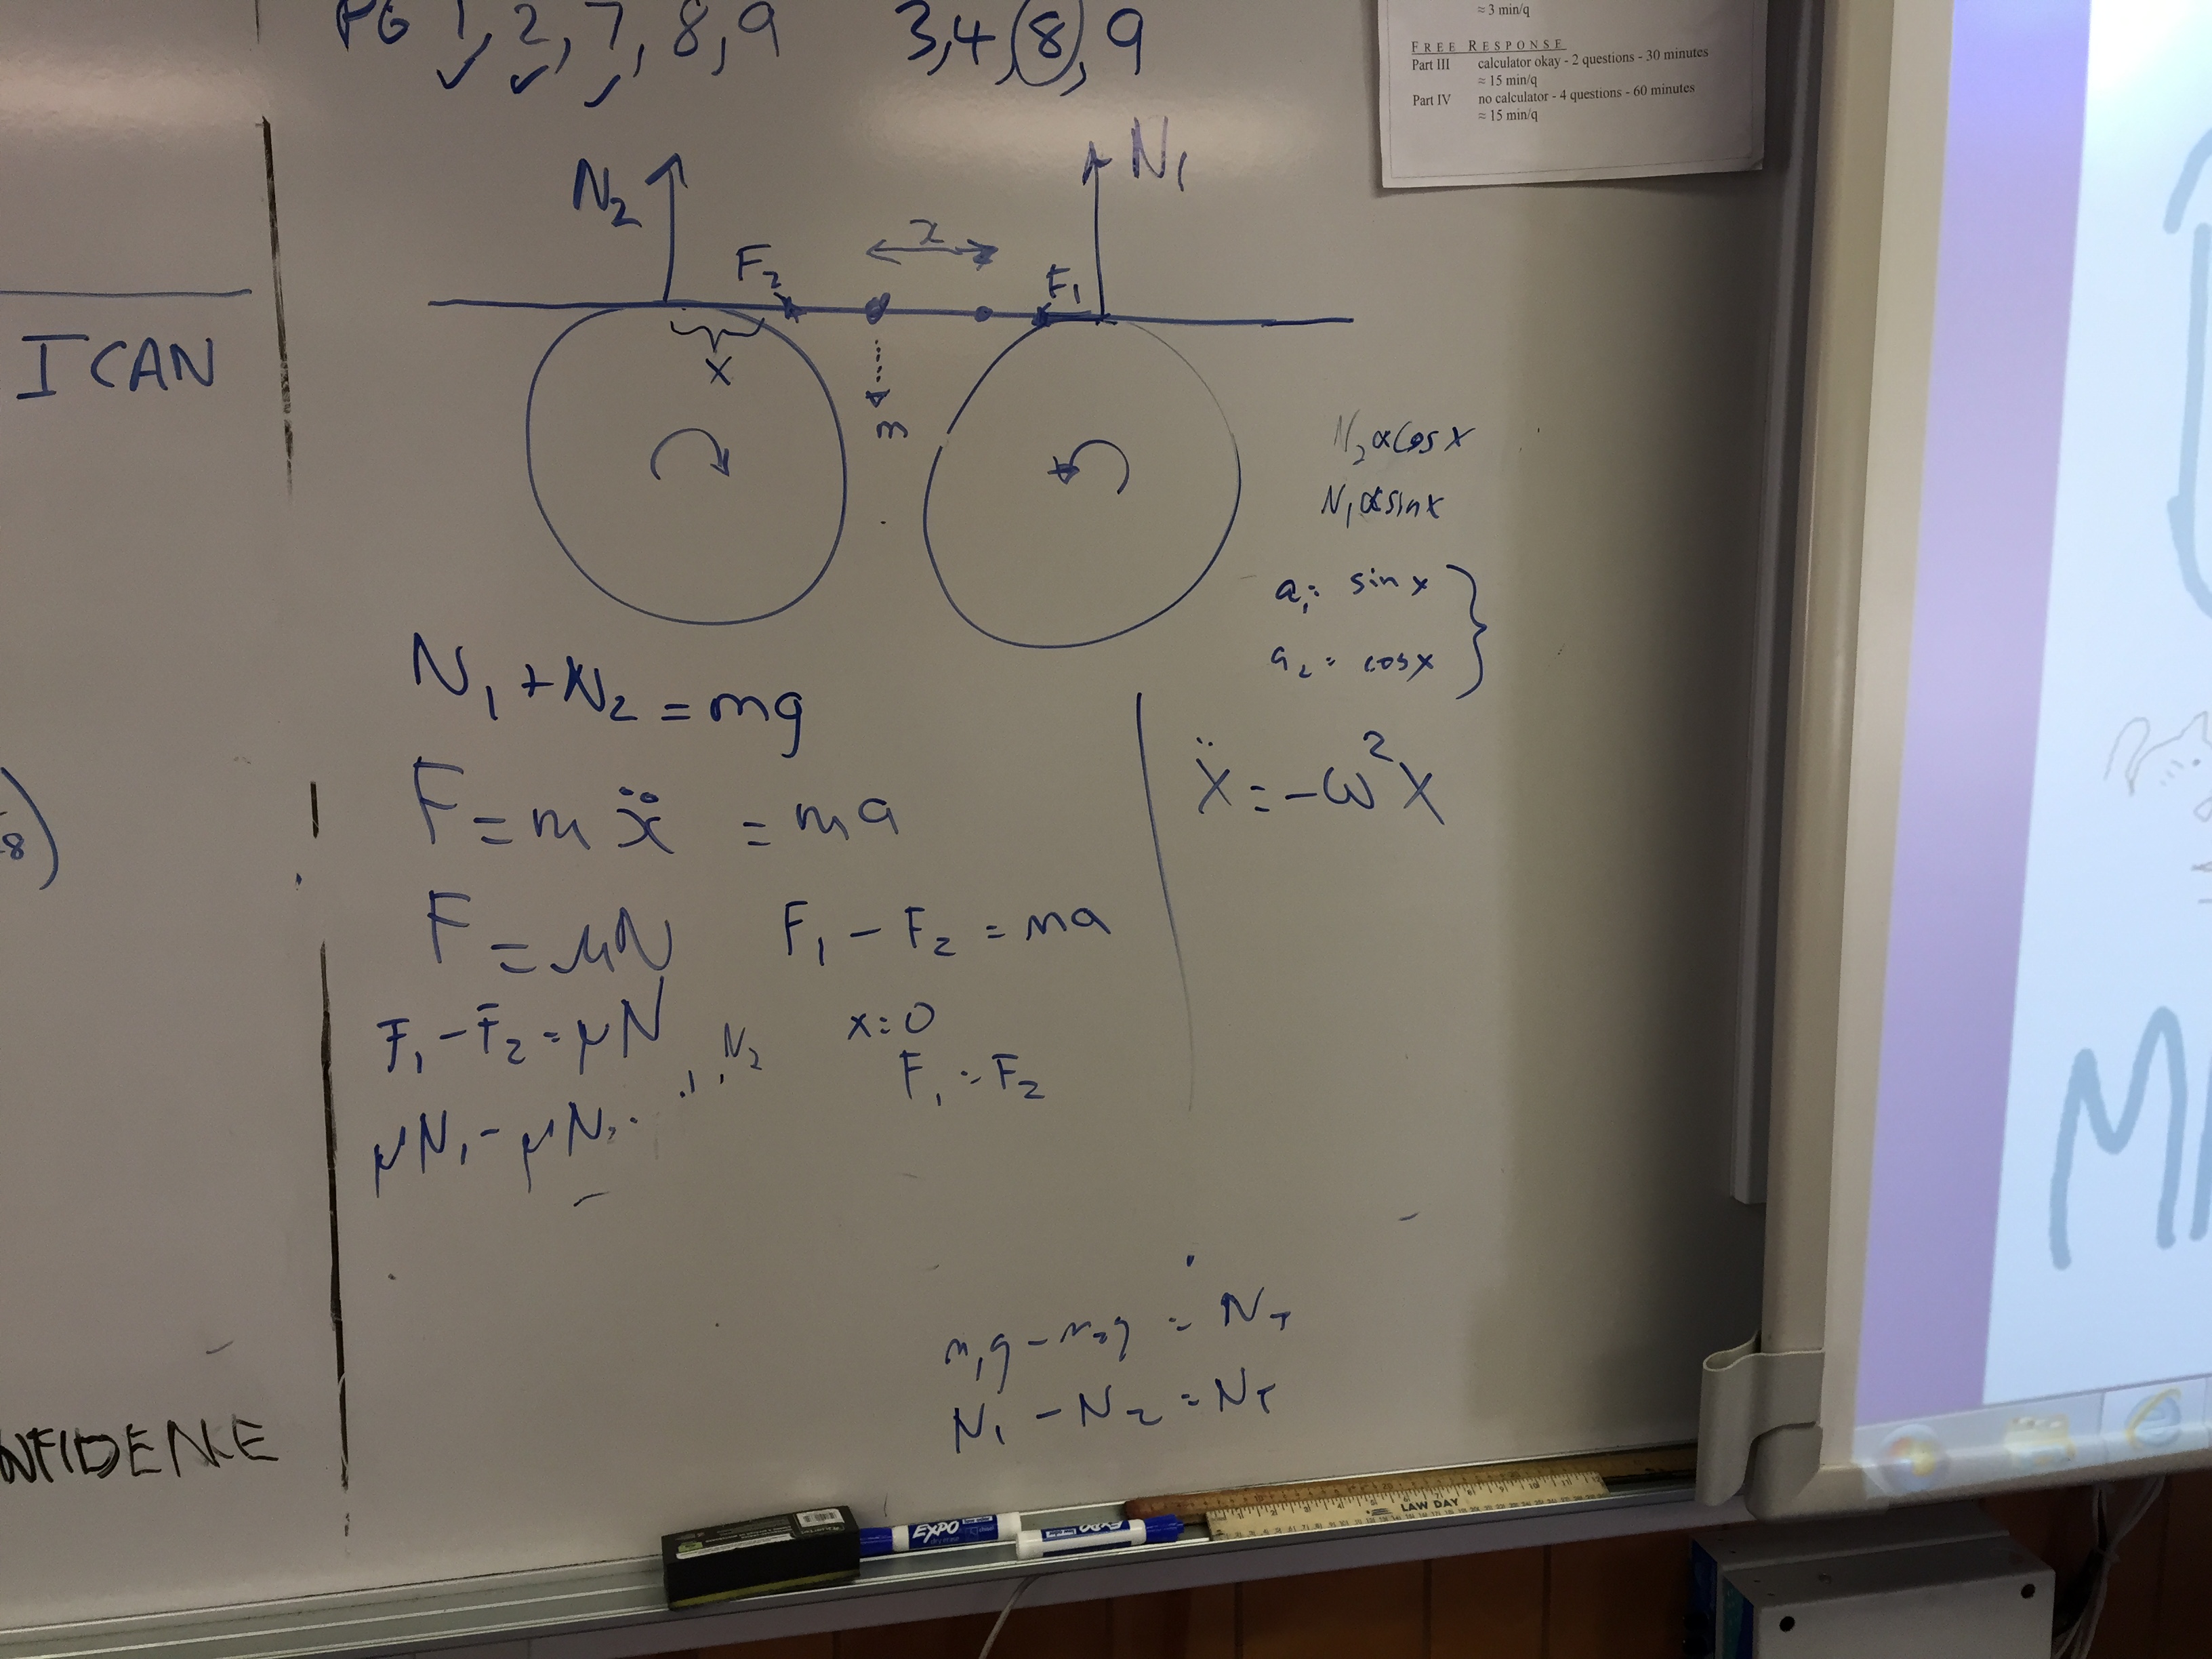 PG 1, 2, 7, 8, 9
3,4,8,9
≈ 3 min/q
FREE RESPONSE
Part III calculator okay - 2 questions - 30 minutes
≈ 15 min/q
Part IV no calculator - 4 questions - 60 minutes
≈ 15 min/q
N₂
N₁
x
F₂
F₁
x
m
I CAN
N₂ ∝ cos x
N₁ ∝ sin x
a₁ = sin x
a₂ = cos x
N₁ + N₂ = mg
F = mẍ = ma
ẍ = -ω²x
8)
F = μN
F₁ - F₂ = ma
F₁ - F₂ = μN
N₂
x = 0
F₁ = F₂
μN₁ - μN
m₁g - m₂g = N_T
N₁ - N₂ = N_T
NFIDENCE
EXPO
EXPO
LAW DAY